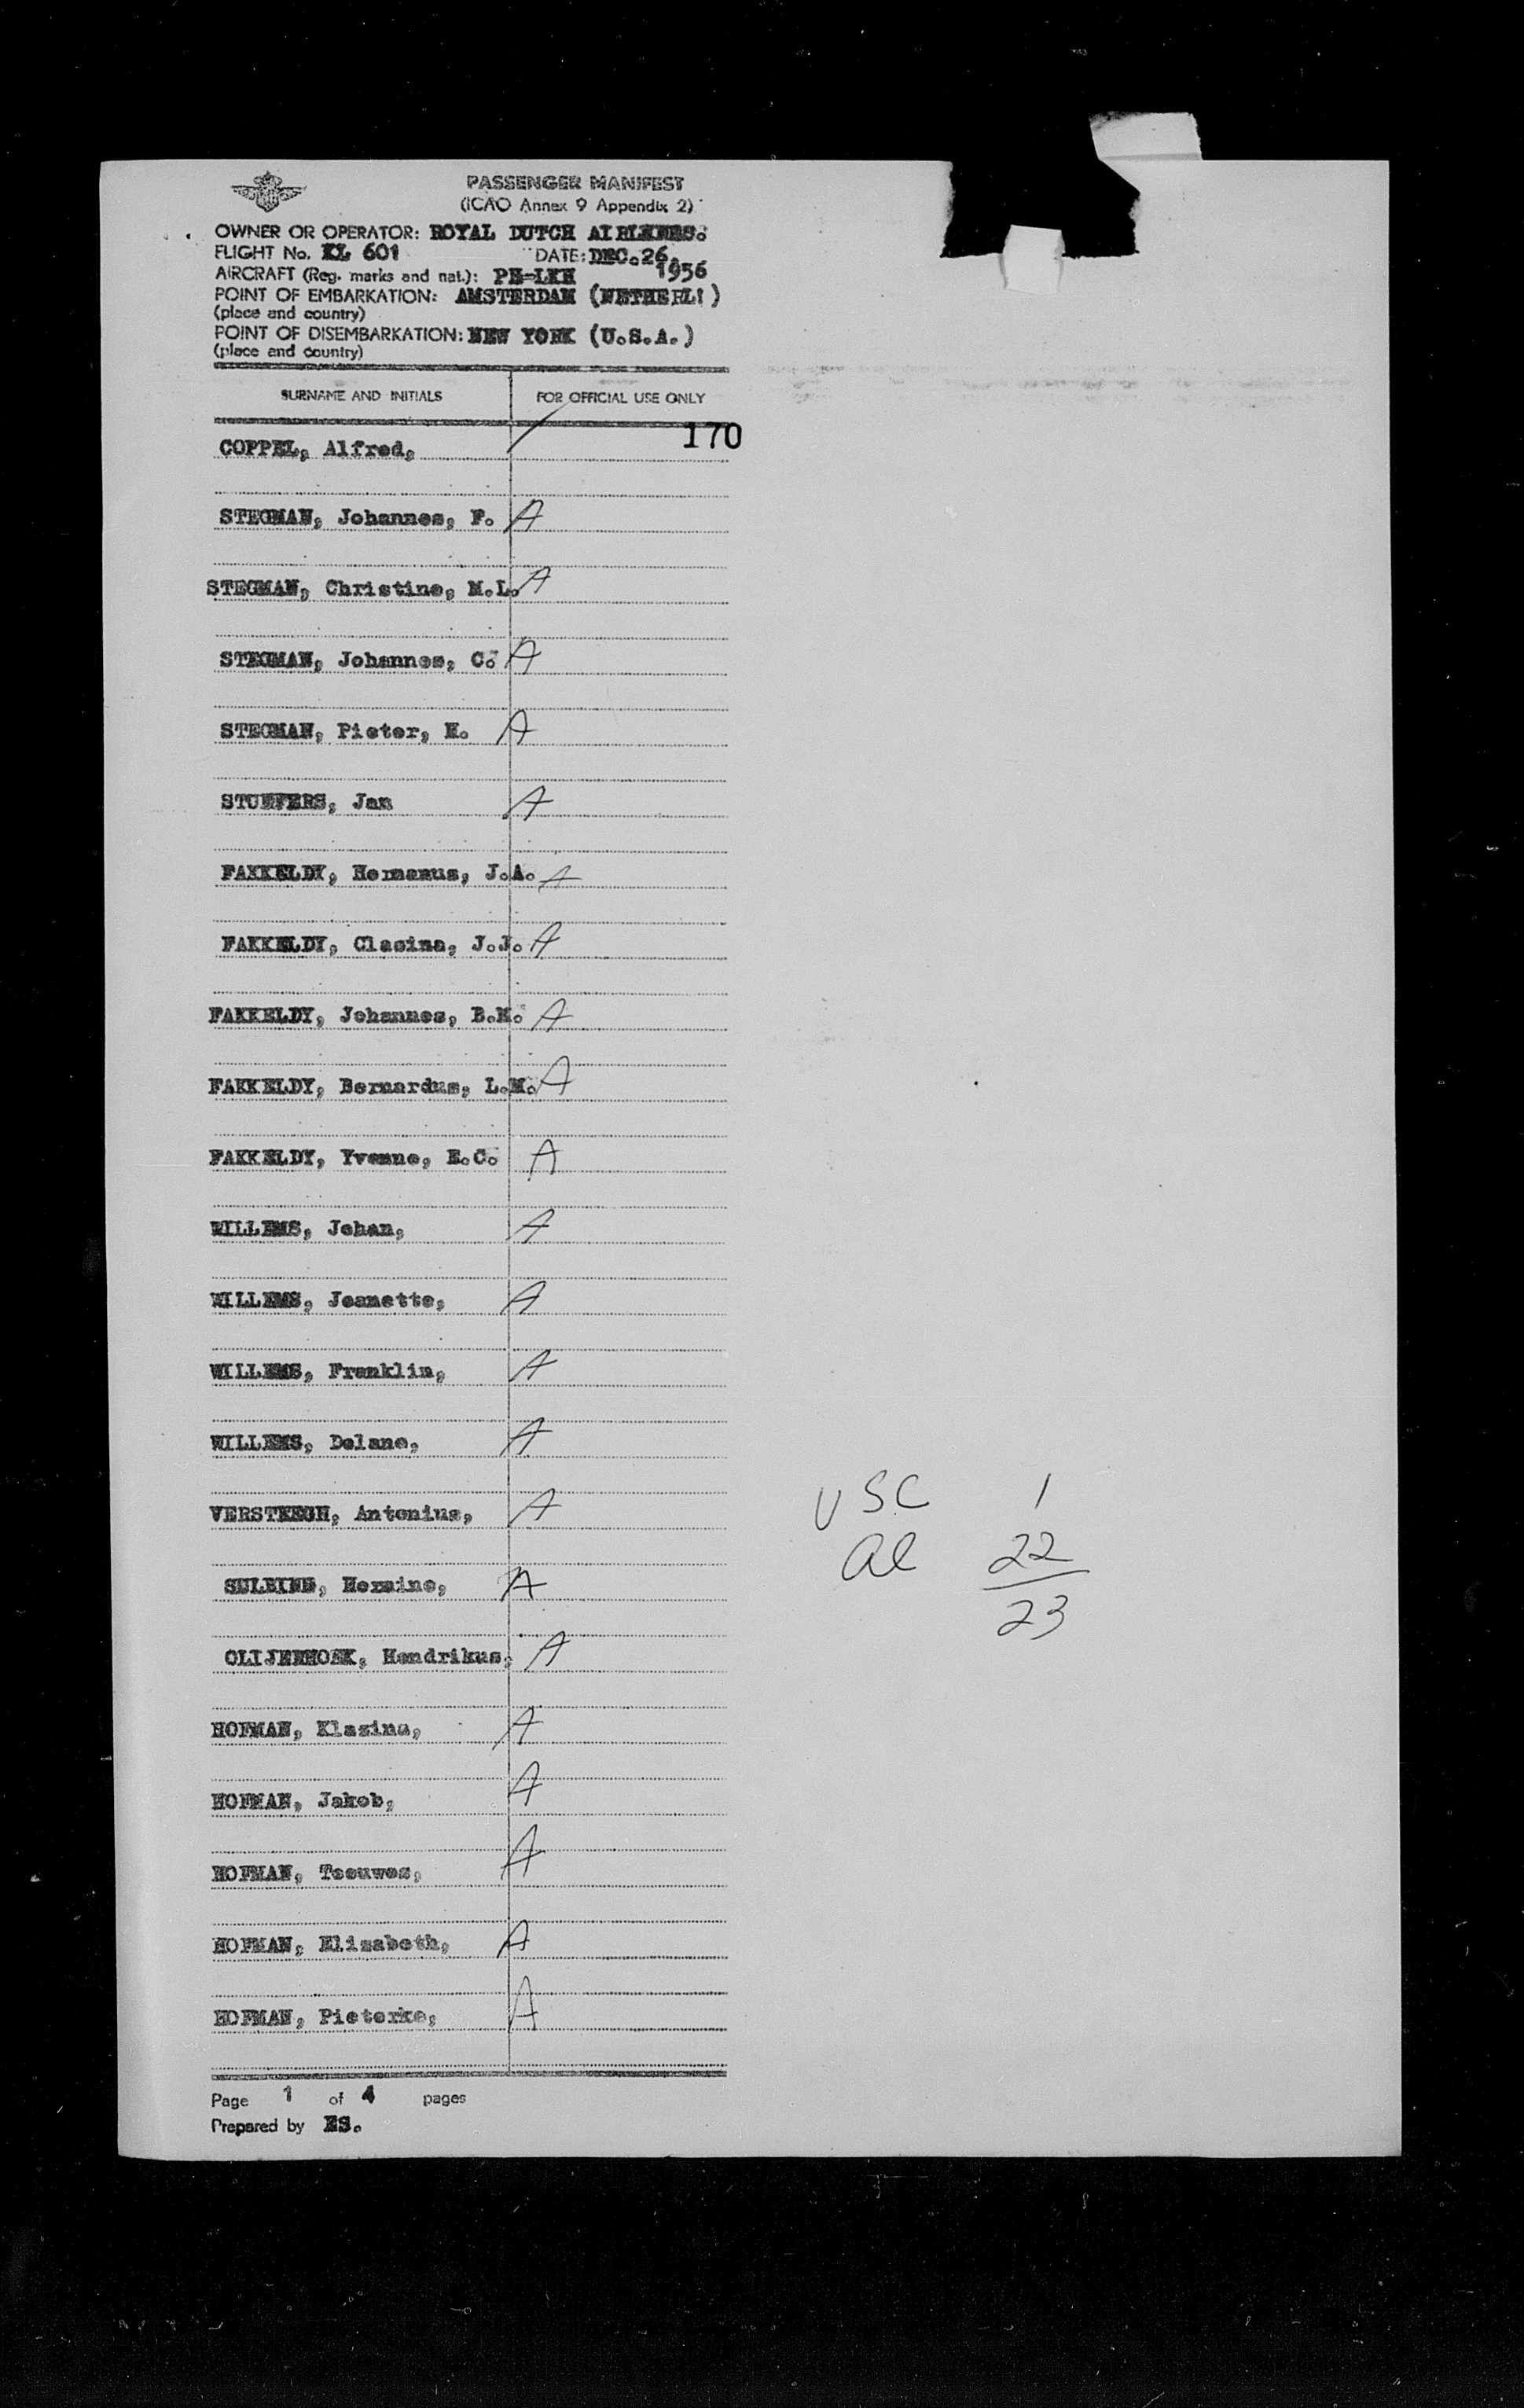 PASSENGER MANIFEST
(ICAO Annex 9 Appendix 2)
OWNER OR OPERATOR: ROYAL DUTCH AIRLINES.
FLIGHT No. KL 601 DATE: DEC. 26, 1956
AIRCRAFT (Reg. marks and nat.):
POINT OF EMBARKATION: AMSTERDAM (NETHERL!)
(place and country)
POINT OF DISEMBARKATION: NEW YORK (U.S.A.)
(place and country)
SURNAME AND INITIALS FOR OFFICIAL USE ONLY
170
COPPEL, Alfred,
STEGMAN, Johannes, F. A
STEGMAN, Christine, M.L. A
STEGMAN, Johannes, C. A
STEGMAN, Pieter, H. A
Jan A
FAKKELDY, Hermanus, J.A. A
FAKKELDY, Clasina, J.J. A
FAKKELDY, Johannes, B.M. A
FAKKELDY, Bernardus, L.M. A
FAKKELDY, Yvonne, E.C. A
WILLEMS, Johan, A
WILLEMS, Jeanette, A
WILLEMS, Franklin, A
WILLEMS, Delano, A
VERSTEEGH, Antonius, A
USC 1
al 22
23
Hermine, A
OLIJERHOEK, Hendrikus, A
HOFMAN, Klasina, A
HOFMAN, Jakob, A
HOFMAN, Teeuwes, A
HOFMAN, Elisabeth, A
HOFMAN, Pieterke, A
Page 1 of 4 pages
Prepared by ES.